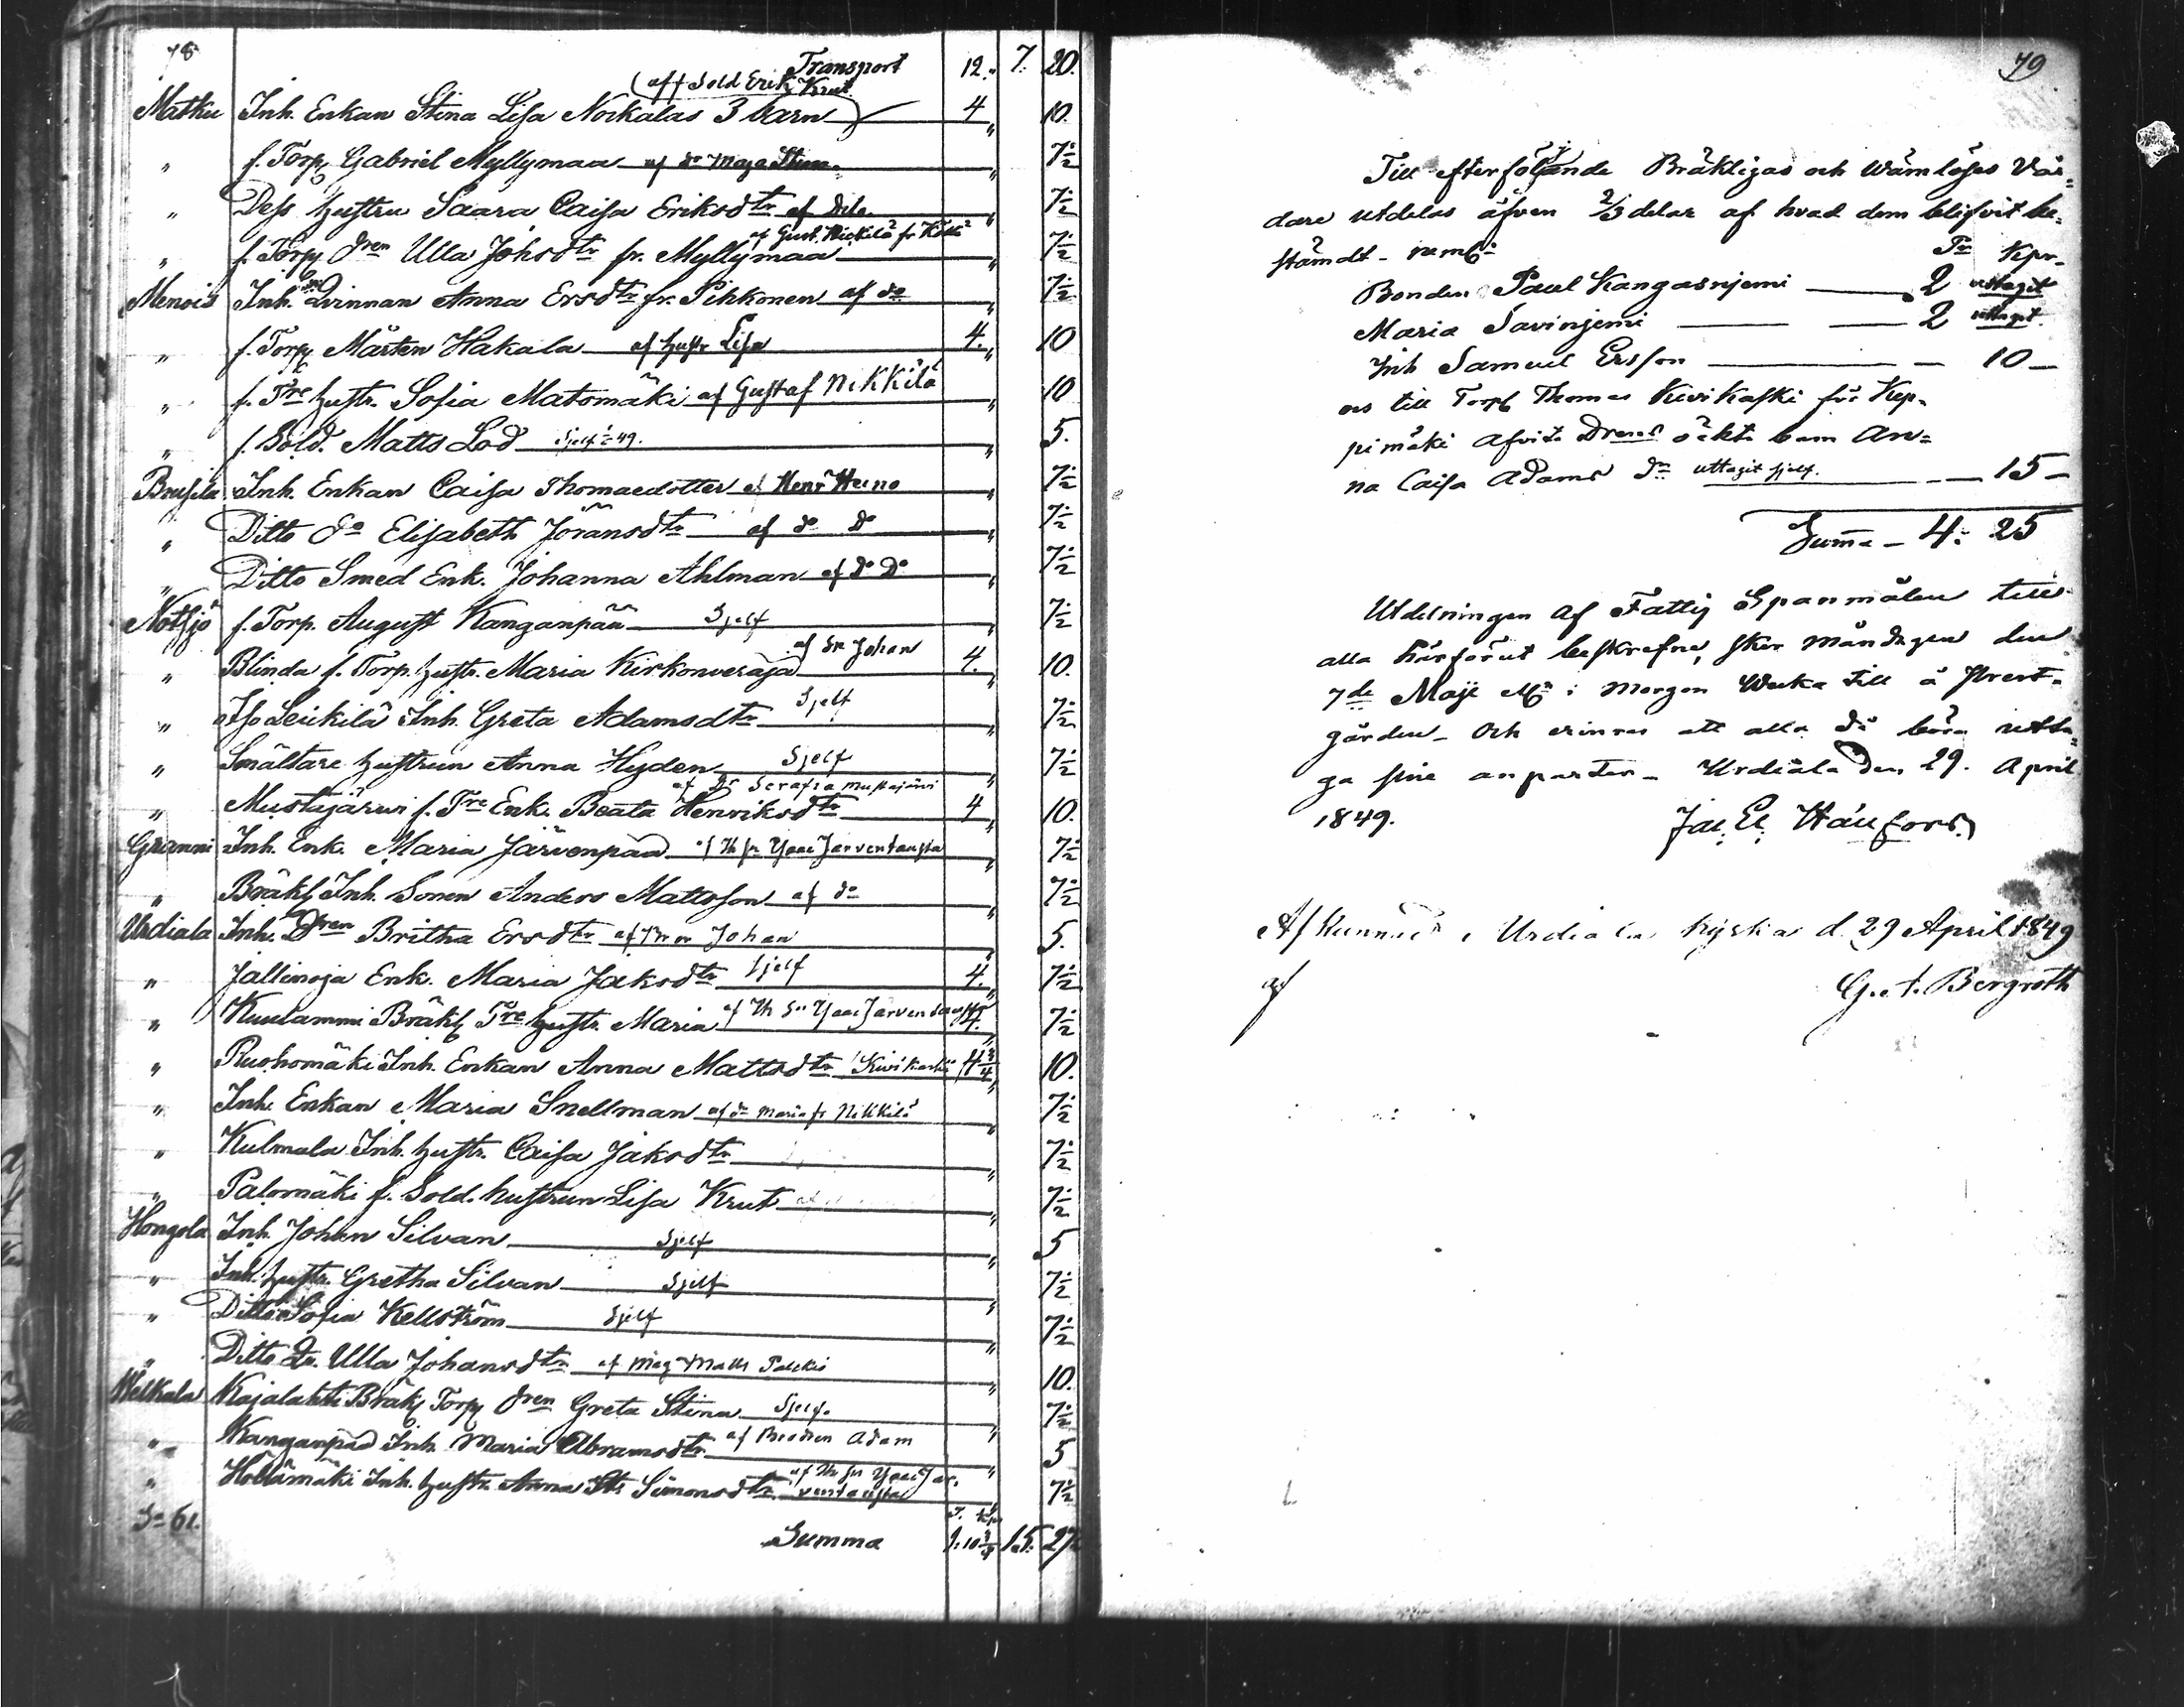 78
Transport 12. 7. 20.
(aff Sold Erik Krut
Matku Inh. Enkan Stina Lisa Nockalas 3 barn 4 " 10.
" f. Torp. Gabriel Myllymaa af do Maja Stina " 7½
" Dess hustru Saara Caisa Eriksdtr af Dito " 7½
af Gust. Nickilä fr
" f. Torp. dren Ulla Johsdtr fr. Myllymaa " 7½
Menois Inh. Qvinnan Anna Ersdtr fr. Pihkonen af do " 7½
" f. Torp Mårten Hakala af hustr Lisa 4. " 10
" f. Tre hustr. Sofia Matomäki af Gustaf Nikkilä " 10
" f. Sold. Matts Lod Sjelf 49. " 5.
Brusila Inh. Enkan Caisa Thomaedotter af Henr Heino " 7½
" Ditto do Elisabeth Jöransdtr af do Do " 7½
" Ditto Smed Enk. Johanna Ahlman af do Do " 7½
Notsjö f. Torp. August Kanganpää Sjelf " 7½
af Sn Johan
" Blinda f. Torp. hustr. Maria Kirkonveräjä 4. " 10.
" Iso Leikilä Inh. Greta Adamsdtr Sjelf " 7½
" Smältare hustrun Anna Hyden Sjelf " 7½
af Dr Serafia Mustajärvi
" Mustajärwi f. Tre Enk. Beata Henriksdtr 4 " 10.
Granni Inh. Enk. Maria Järvenpää af Th sn Ysac Jarventausta " 7½
" Bräkl Inh. Sonen Anders Mattsson af do " 7½
Urdiala Inh. Dren Britha Ersdtr af Johan " 5.
" Jallinoja Enk. Maria Jaksdtr Sjelf 4. " 7½
" Kuulammi Bräkl Tre hustr Maria af Th Sn Ysac Jarventausta 4. " 7½
" Ruohomäki Inh. Enkan Anna Mattsdtr Kivikaski 4¾ " 10.
" Inh. Enkan Maria Snellman af dr Maria fr Nikkilä " 7½
" Kulmala Inh. hustr. Caisa Jaksdtr " 7½
" Palomäki f. Sold. hustrun Lisa Krut " 7½
Hongola Inh. Johan Silvan Sjelf " 5
" Inh. hustr. Gretha Silvan Sjelf " 7½
" Ditto Sofia Kellström Sjelf " 7½
" Ditto Ulla Johansdtr af Matts " 10.
Welkala Kajalahti Bräkl Torp dren Greta Stina Sjelf. " 7½
" Kanganpää Inh. Maria Abramsdtr af Brodren Adam " 5
af Th sn Ysac Jar-
" Inh. hustr. Anna St. Simonsdtr ventausta " 7½
Sa 61. T. kp
Summa 1. 10¾ 15. 27½
79
Till efterföljande Bräkligas och Wärnlösas Vår-
dare utdelas äfven 2/3 delar af hvad dem blifvit be-
stämdt - neml: Tr Kpr-
Bonden Paul Kangasnjemi 2 uttagit
Maria Savinjemi 2 uttagit
Inh Samuel Ersson 10 –
os till Torp Thomas Kivikaski för Kep-
pimäki afvita Drens oäkta barn An-
na Caisa Adams dr uttagit sjelf. 15 –
Summa – 4: 25
Utdelningen af Fattig Spanmålen till
alla härförut beskrefne, sker måndagen den
7de Maji i morgon Wecka till å Prest-
gården – Och erinras att alla då böra utta-
ga sine anparter – Urdiala den 29. April
1849. Jac. El. Hällfors
Afkunnadt i Urdiala kyrka d. 29 April 1849
af G. A. Bergroth